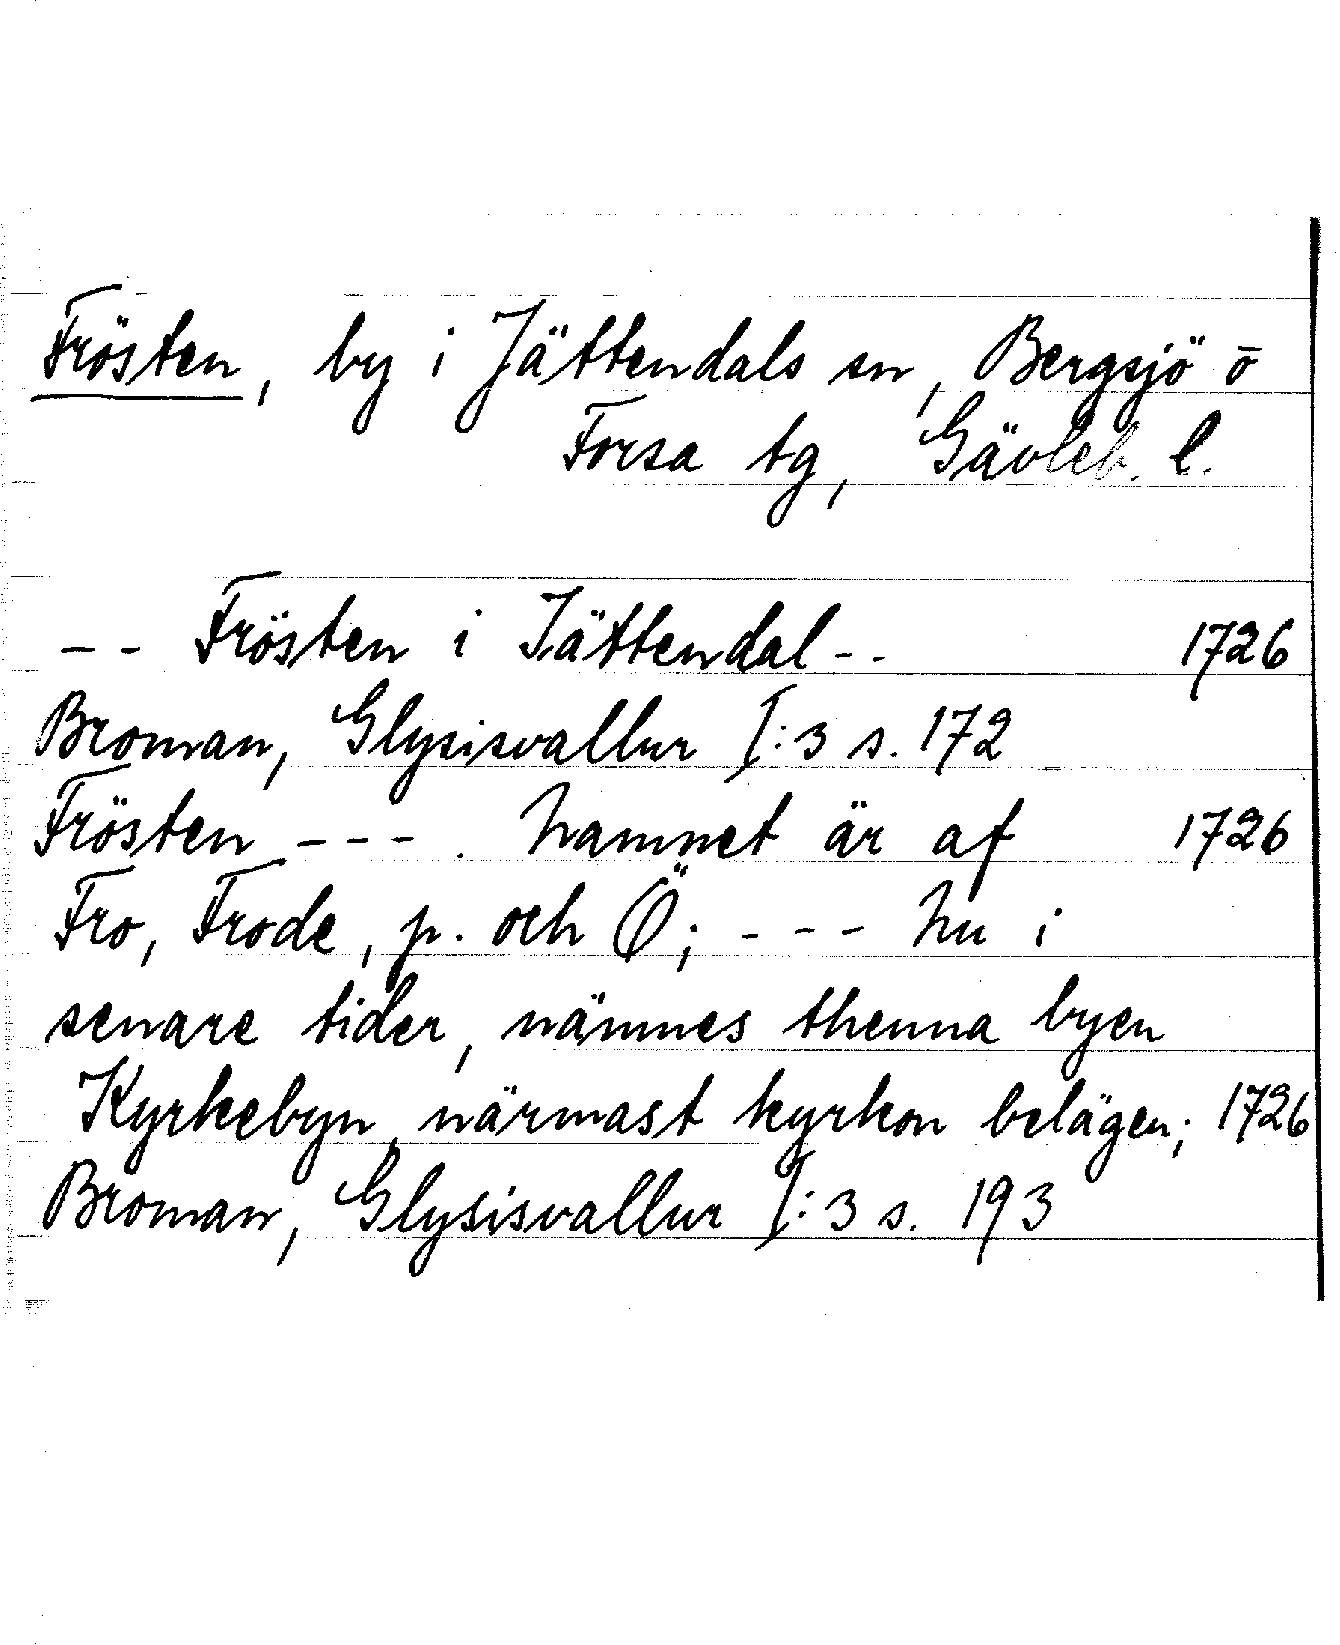 Frösten, by i Jättendals sn, Bergsjö o
Forsa tg, Gävleb. l.
-- Frösten i Jättendal -- 1726
Broman, Glysisvallur I:3 s. 172
Frösten ---. Namnet är af 1726
Fro, Frode, p. och Ö; --- Nu i
senare tider, nämnes thenna byen
Kyrkebyn, närmast kyrkon belägen; 1726
Broman, Glysisvallur I:3 s. 193